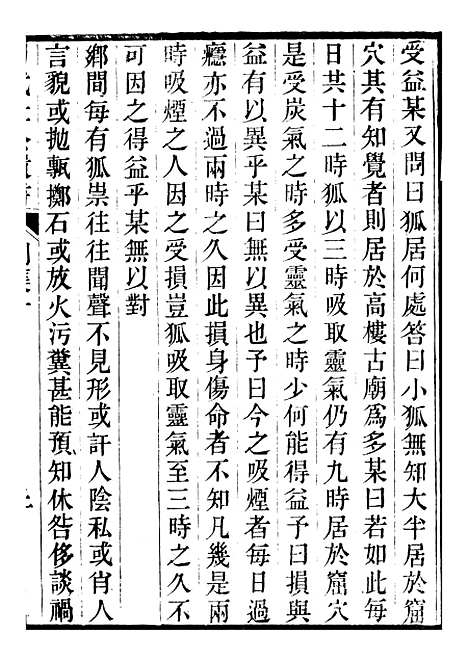 受益某又問曰狐居何處答曰小狐無知大半居於窟
穴其有知覺者則居於高樓古廟爲多某曰若如此每
日共十二時狐以三時吸取靈氣仍有九時居於窟穴
是受炭氣之時多受靈氣之時少何能得益予曰損與
益有以異乎某曰無以異也予曰今之吸煙者每日過
癮亦不過兩時之久因此損身傷命者不知凡幾是兩
時吸煙之人因之受損豈狐吸取靈氣至三時之久不
可因之得益乎某無以對
鄉間每有狐祟往往聞聲不見形或訐人陰私或肖人
言貌或拋甎擲石或放火污糞甚能預知休咎侈談禍